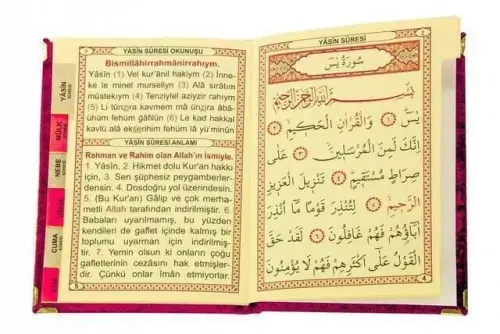 YÂSÎN SÛRESİ OKUNUŞU
Bismillâhirrahmânirrahıym.
Yâsîn (1) Vel kur'ânil hakiym (2) İnne-
ke le minel murseliyn (3) Alâ sırâtım
müstekıym (4) Tenziylel aziyzir rahiym
(5) Li tünzira kavmem mâ ünzira âbâ-
ühüm fehüm ğâfilûn (6) Le kad hakkal
kavlü alâ ekserihim fehüm lâ yü'minûn
YÂSÎN SÛRESİ ANLAMI
Rahman ve Rahim olan Allah'ın İsmiyle.
1. Yâsîn, 2. Hikmet dolu Kur'an hakkı
için, 3. Sen şüphesiz peygamberler-
densin. 4. Dosdoğru yol üzerindesin.
5. (Bu Kur'an) Gâlip ve çok merha-
metli Allah tarafından indirilmiştir. 6.
Babaları uyarılmamış, bu yüzden
kendileri de gaflet içinde kalmış bir
toplumu uyarman için indirilmiş-
tir. 7. Yemin olsun ki onların çoğu
gafletlerinin cezasını hak etmişler-
dir. Çünkü onlar îman etmiyorlar.
5
YÂSÎN
SÛRESİ
MÜLK
NEBE
CUMA
YÂSÎN SÛRESİ
سُورَةُ يٰسٓ
بِسْمِ اللّٰهِ الرَّحْمٰنِ الرَّحِيمِ
يٰسٓ ﴿١﴾ وَالْقُرْاٰنِ الْحَكِيمِ ﴿٢﴾
اِنَّكَ لَمِنَ الْمُرْسَلِينَ ﴿٣﴾ عَلٰى
صِرَاطٍ مُسْتَقِيمٍ ﴿٤﴾ تَنْزِيلَ الْعَزِيزِ
الرَّحِيمِ ﴿٥﴾ لِتُنْذِرَ قَوْمًا مَٓا اُنْذِرَ
اٰبَٓاؤُ۬هُمْ فَهُمْ غَافِلُونَ ﴿٦﴾ لَقَدْ حَقَّ
الْقَوْلُ عَلٰٓى اَكْثَرِهِمْ فَهُمْ لَا يُؤْمِنُونَ
4